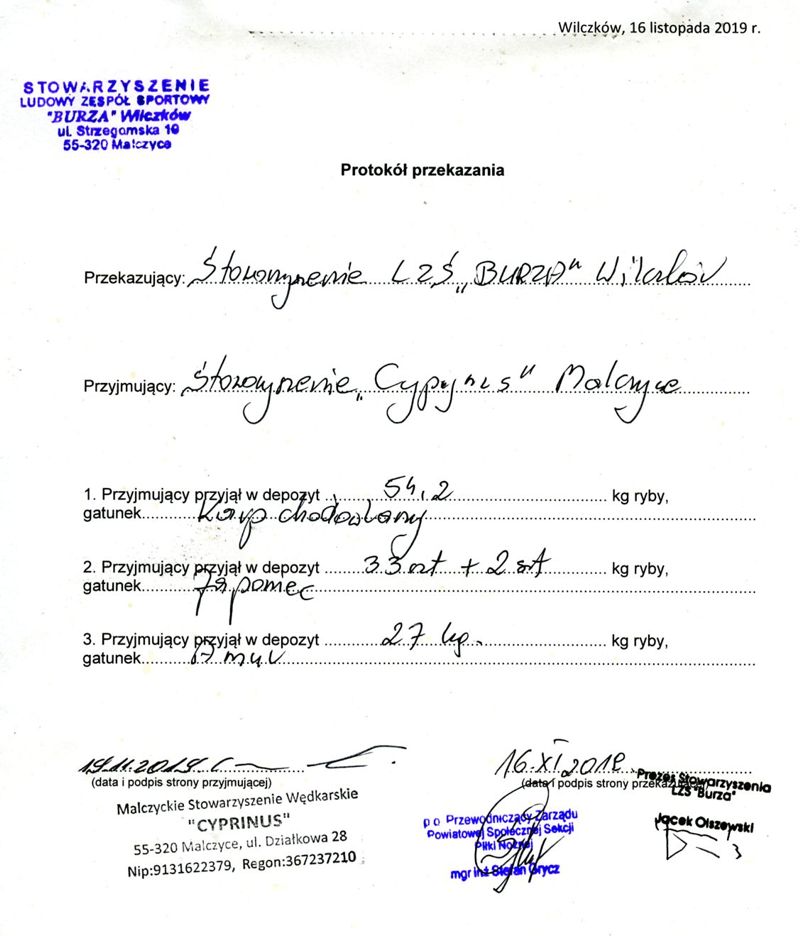 Wilczków, 16 listopada 2019 r.
STOWARZYSZENIE
LUDOWY ZESPÓŁ SPORTOWY
"BURZA" Wilczków
ul. Strzegomska 10
55-320 Malczyce
Protokół przekazania
Przekazujący: Stowarzyszenie LZS „BURZA" Wilczków
Przyjmujący: Stowarzyszenie „Cyprynus" Malczyce
1. Przyjmujący przyjął w depozyt 54,2 kg ryby,
gatunek Karp chodowlany
2. Przyjmujący przyjął w depozyt 33 szt + 2 szt kg ryby,
gatunek Japoniec
3. Przyjmujący przyjął w depozyt 27 kg. kg ryby,
gatunek Amur
19.11.2019
(data i podpis strony przyjmującej)
Malczyckie Stowarzyszenie Wędkarskie
"CYPRINUS"
55-320 Malczyce, ul. Działkowa 28
Nip:9131622379, Regon:367237210
16.XI 2019
(data i podpis strony przekazującej)
p o Przewodniczący Zarządu
Powiatowej Społecznej Sekcji
Piłki Nożnej
mgr inż Stefan Grycz
Prezes Stowarzyszenia
LZS "Burza"
Jacek Olszewski